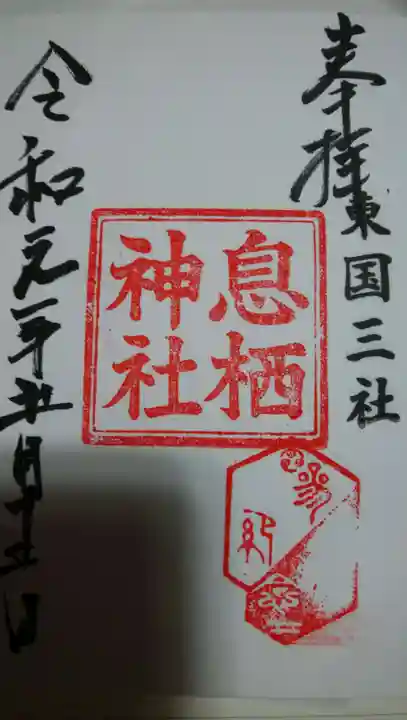 奉拝
東国三社
息栖
神社
令和元年五月十五日